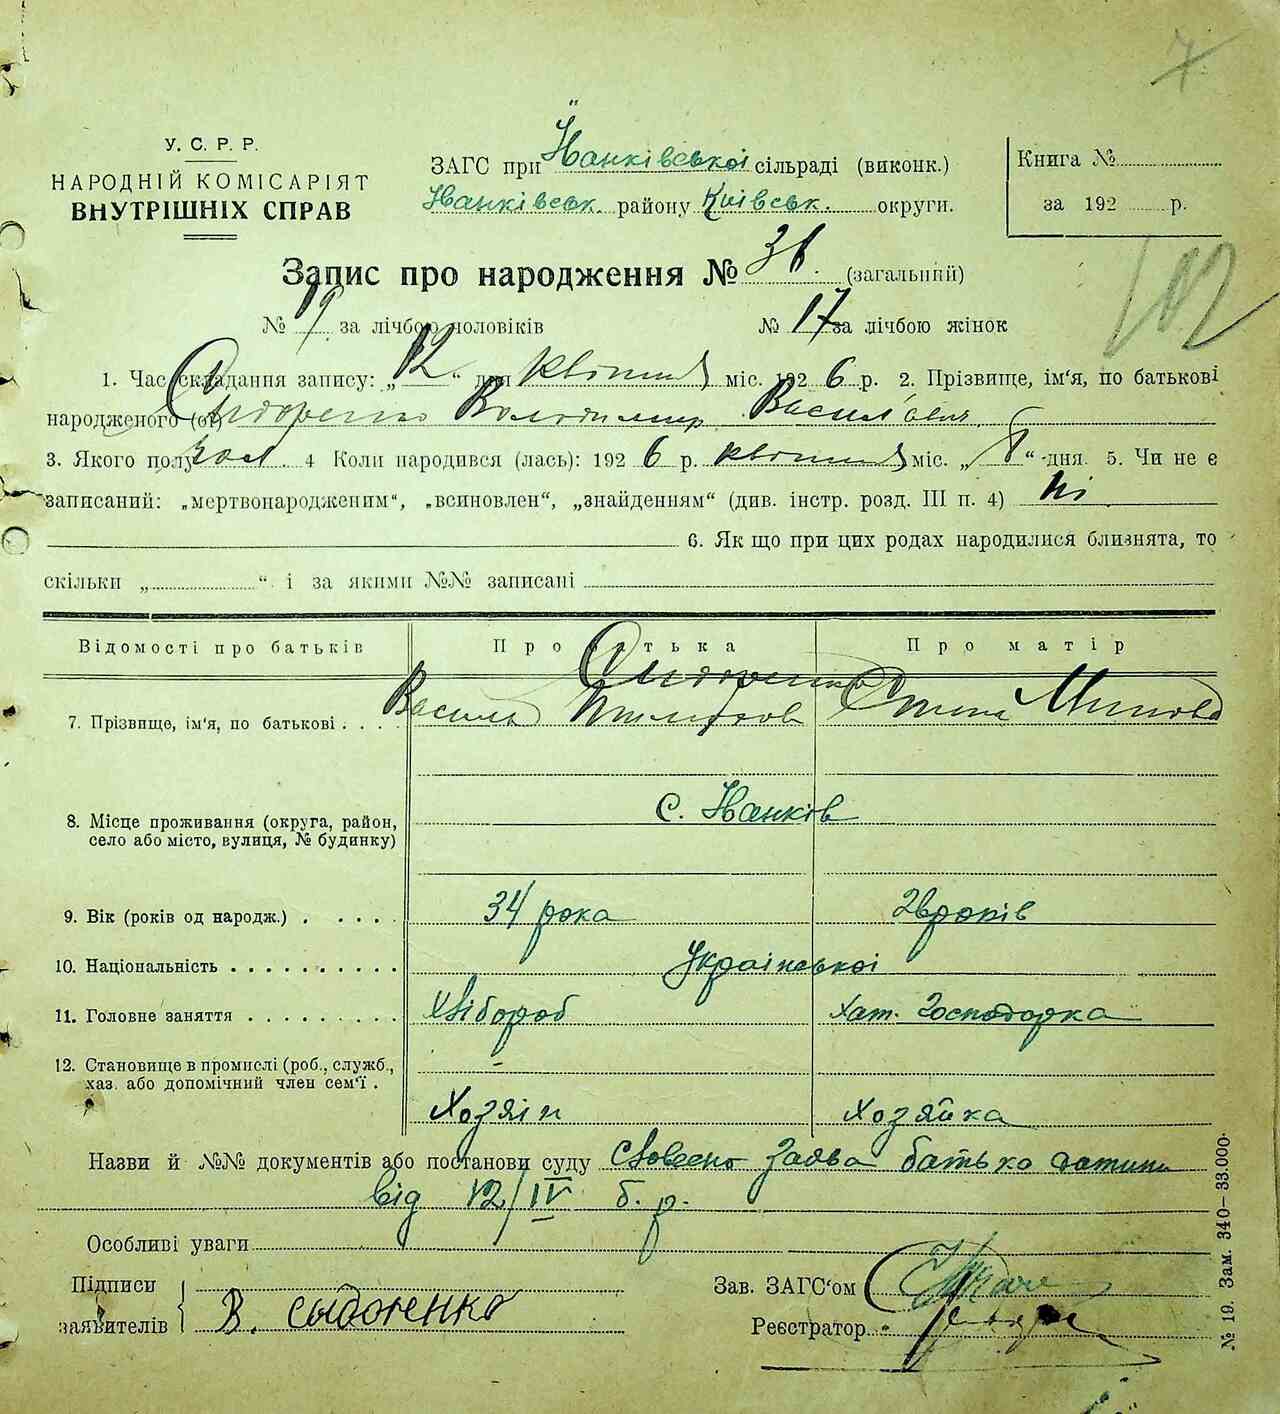 7
У. С. Р. Р.
НАРОДНІЙ КОМІСАРІЯТ
ВНУТРІШНІХ СПРАВ
ЗАГС при Іванківської сільраді (виконк.)
Іванківськ. району Київськ. округи.
Книга №
за 192 р.
102
Запис про народження № 36. (загальний)
№ 19 за лічбою чоловіків № 17 за лічбою жінок
1. Час складання запису: „12“ дня квітня міс. 1926 р. 2. Прізвище, ім'я, по батькові
народженого (ої) Сидоренко Володимир Васильович
3. Якого полу чол. 4 Коли народився (лась): 1926 р. квітня міс. „8“ -дня. 5. Чи не є
записаний: „мертвонародженим“, „всиновлен“, „знайденням“ (див. інстр. розд. III п. 4) ні
6. Як що при цих родах народилися близнята, то
скільки „ “ і за якими №№ записані
Відомості про батьків Про батька Про матір
Сидоренко
7. Прізвище, ім'я, по батькові . . . . Василь
с. Іванків
8. Місце проживання (округа, район,
село або місто, вулиця, № будинку)
9. Вік (років од народж.) . . . . . 34 рока 26 років
10. Національність . . . . . . . . . . Української
11. Головне заняття . . . . . . . . . Хлібороб Хат. Господорка
12. Становище в промислі (роб., служб., -
хаз. або допомічний член сем'ї .
Хозяін Хозяйка
Назви й №№ документів або постанови суду Словесно заява батько датини
від 12/IV б. р.
Особливі уваги
Підписи
заявителів В. Сыдоренко
Зав. ЗАГС'ом
Реєстратор
№ 19. Зам. 340–33.000.